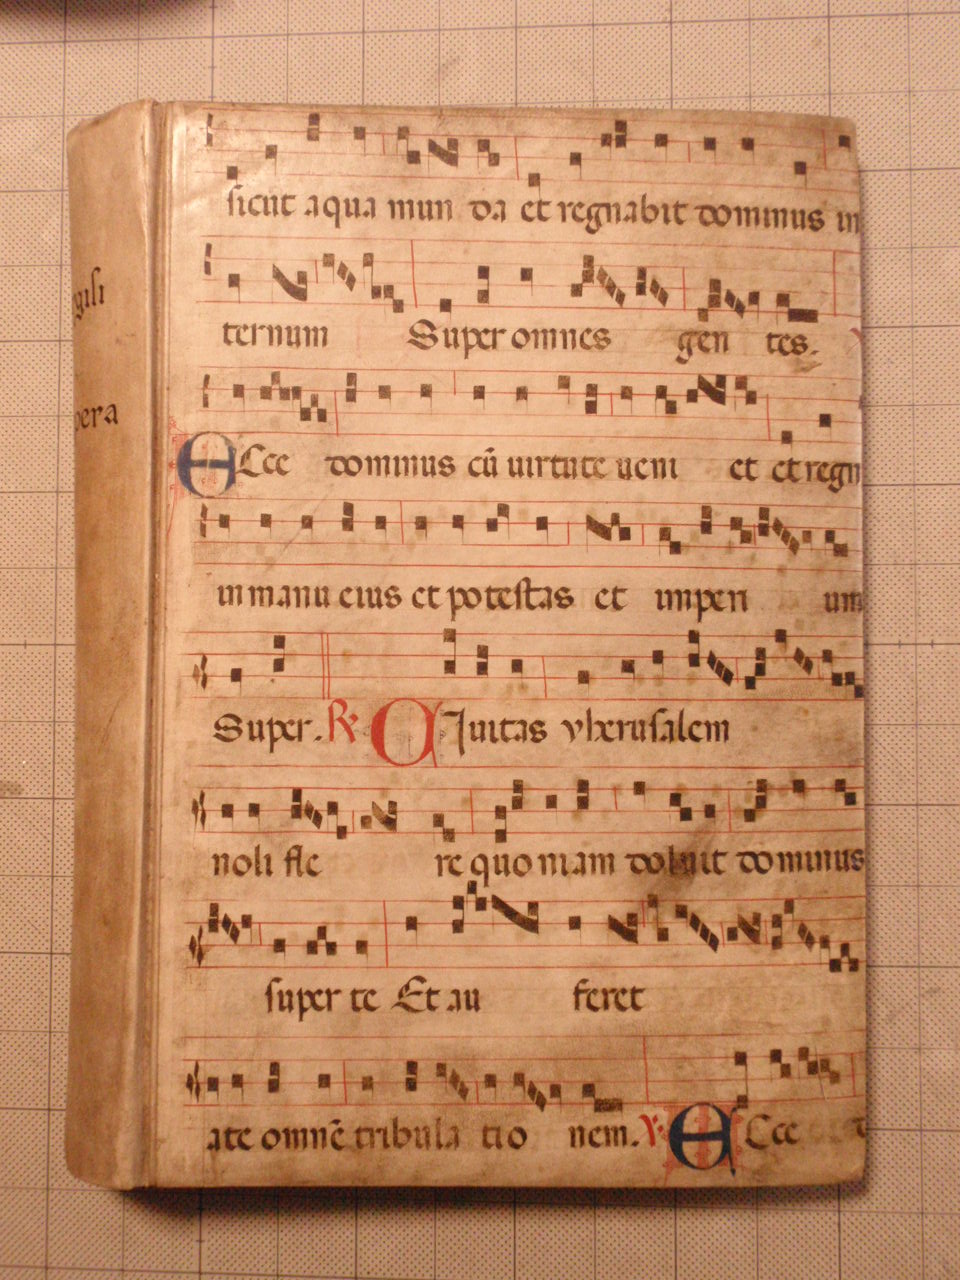 gili
pera
sicut aqua mun da et regnabit dominus in
ternum Super omnes gen tes.
Ecce dominus cū uirtute ueni et et regn
in manu eius et potestas et imperi um
Super. ℟ Ciuitas yherusalem
noli fle re quoniam doluit dominus
super te Et au feret
ate omnē tribula tio nem. ℣ Ecce